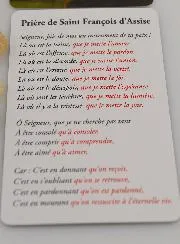 Prière de Saint François d'Assise
Seigneur, fais de moi un instrument de ta paix !
Là où est la haine, que je mette l'amour
Là où est l'offense, que je mette le pardon
Là où est la discorde, que je mette l'union
Là où est l'erreur, que je mette la vérité
Là où est le doute, que je mette la foi
Là où est le désespoir, que je mette l'espérance
Là où sont les ténèbres, que je mette la lumière
Là où il y a la tristesse, que je mette la joie.
Ô Seigneur, que je ne cherche pas tant
À être consolé qu'à consoler,
À être compris qu'à comprendre,
À être aimé qu'à aimer.
Car : C'est en donnant qu'on reçoit,
C'est en s'oubliant qu'on se retrouve,
C'est en pardonnant qu'on est pardonné,
C'est en mourant qu'on ressuscite à l'éternelle vie.